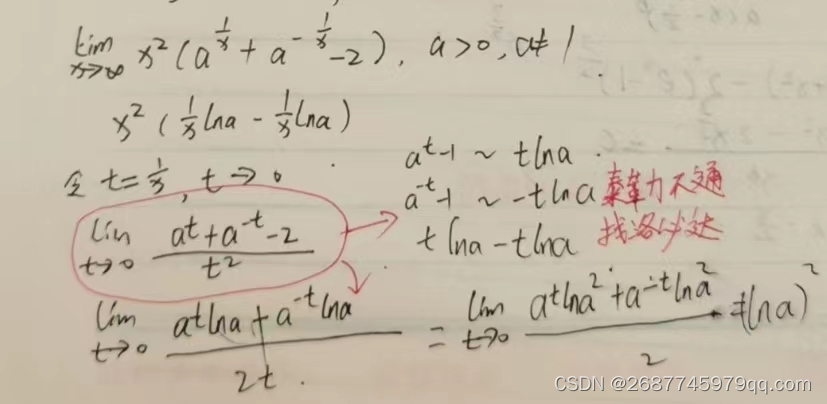 lim x→∞ x²(a^{1/x} + a^{-1/x} - 2), a>0, a≠1
x²(1/x lna - 1/x lna)
令 t=1/x, t→0
a^t-1 ~ tlna
a^{-t}-1 ~ -tlna 泰勒不通
tlna - tlna 找洛必达
lim t→0 (a^t + a^{-t} - 2)/t²
lim t→0 (a^t lna + a^{-t} lna)/2t = lim t→0 (a^t lna² + a^{-t} lna²)/2 = (lna)²
CSDN @2687745979qq.com